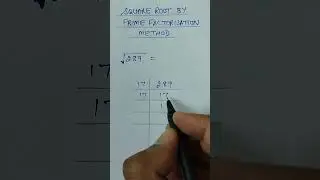 SQUARE ROOT BY
PRIME FACTORISATION
METHOD
√289 =
17 | 289
17 | 17
1